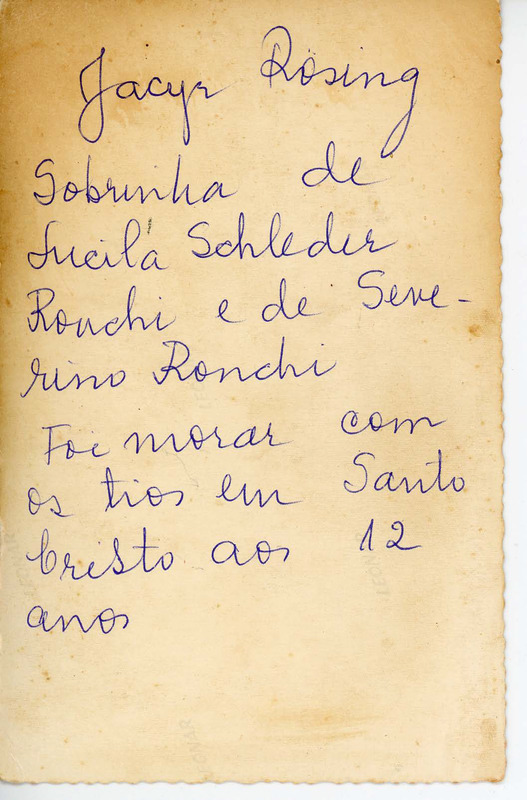 Jacyr Rösing
Sobrinha de
Lucila Schleder
Ronchi e de Seve-
rino Ronchi
Foi morar com
os tios em Santo
Cristo aos 12
anos